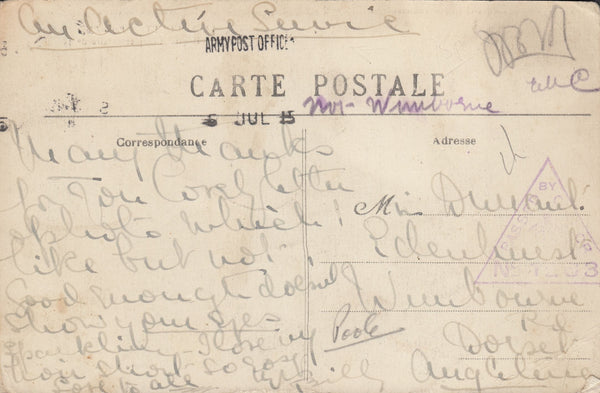 On Active Service
ARMY POST OFFICE
CARTE POSTALE
5 JUL 15
Not Wimborne
Correspondance
Adresse
Many thanks
for your lovely letter
& photo which I
like but not
good enough doesn't
show your eyes
sparkling I love my
so
love to all
Miss
Edenhurst
Wimbourne
Rd
Poole
Dorset
Angleterre
PASSED BY
No 1203